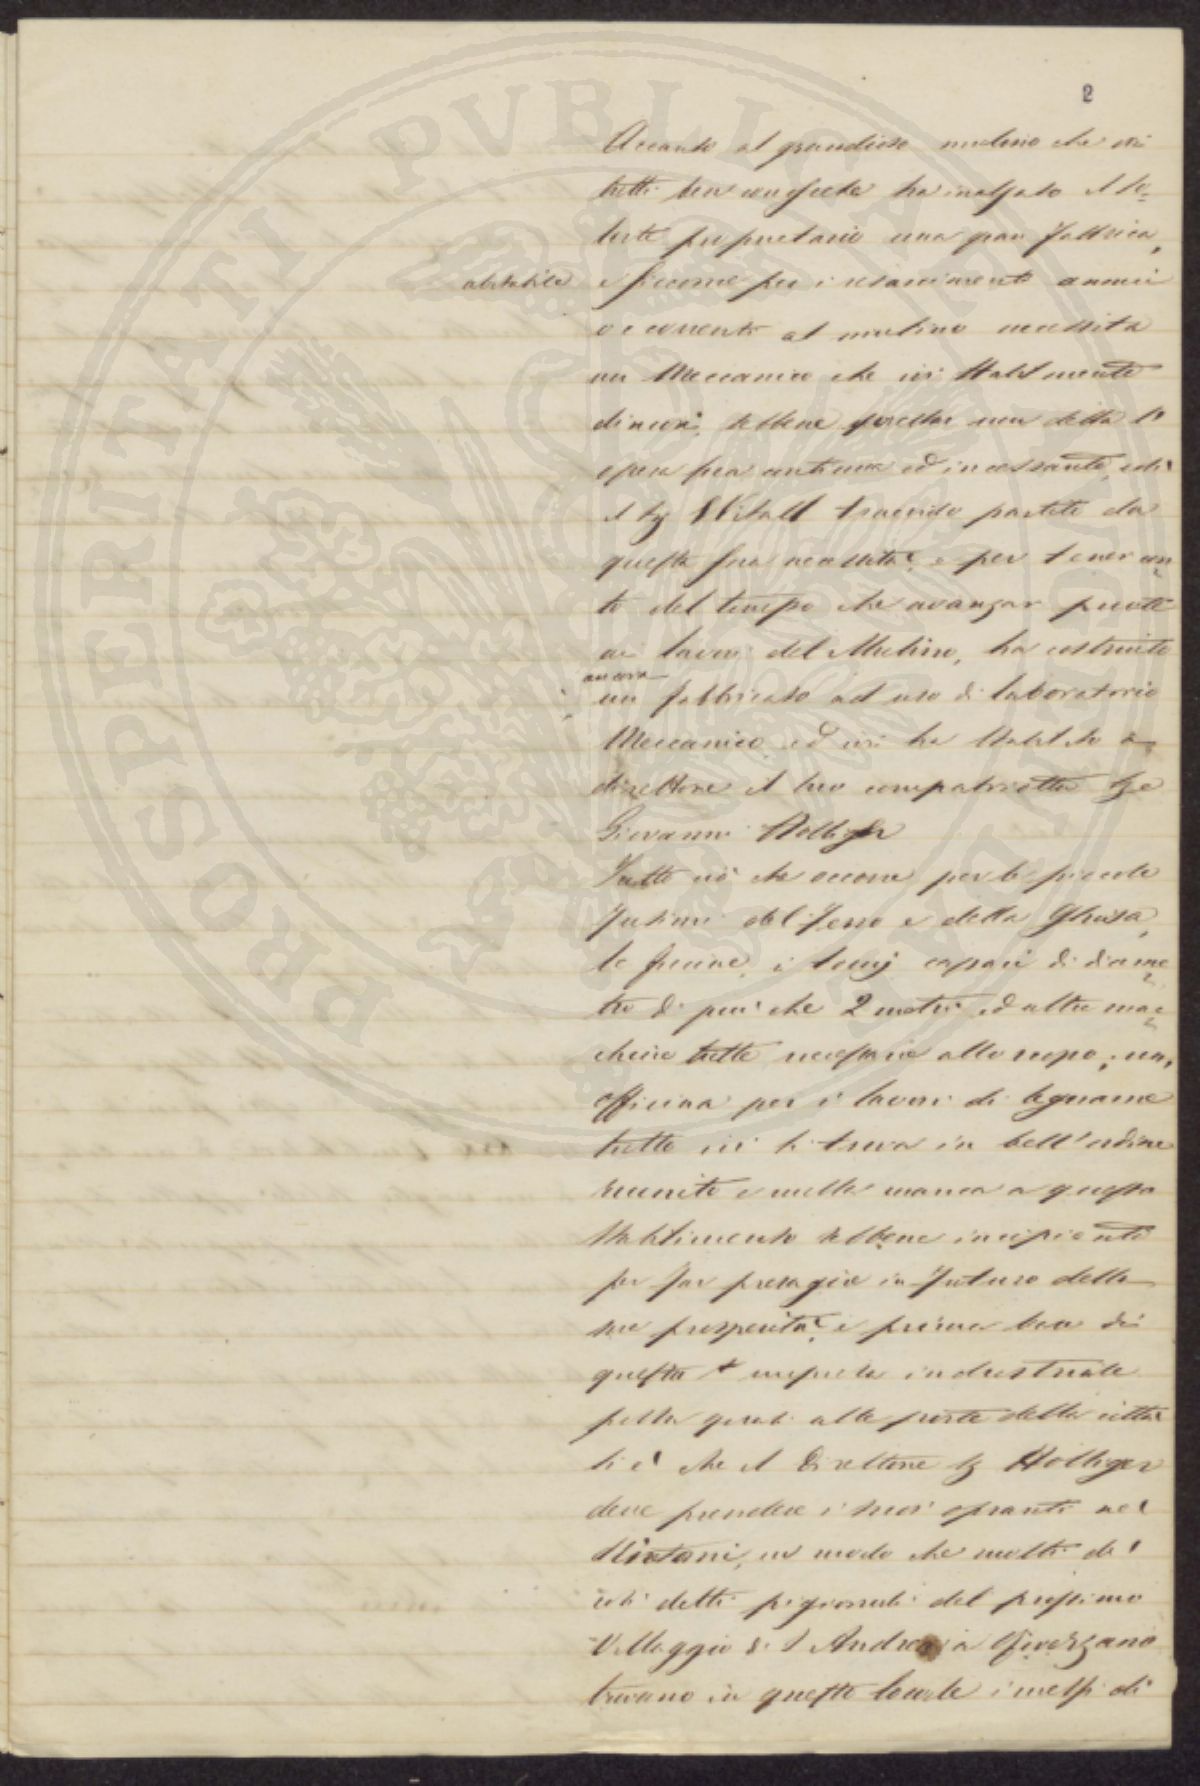 2
Accanto al grandioso mulino che voi
tutti ben conoscete ha inalzato il so-
lerte proprietario una gran fabbrica,
abitabile
e siccome per i risarcimenti annui
occorrenti al mulino necessita
un Meccanico che ivi stabilmente
dimori, sebbene non della
opera sua continua ed incessante, così
il Sig traendo partito da
questa sua necessità, e per tener con
to del tempo che avanzar puote
ai lavori del Mulino, ha costruito
ancora
un fabbricato ad uso di laboratorio
Meccanico ed ivi ha stabilito a
direttore il suo compatriotta Sig
Giovanni Holliger
Tutto ciò che occorre per le piccole
fusioni del ferro e della Ghisa,
le fucine, i tornj capaci di diame
tro di più che 2 metri ed altre mac
chine tutte necessarie allo scopo; una
officina per i lavori di legname
tutto ivi si trova in bell'ordine
riunito e nulla manca a questo
stabilimento sebbene incipiente
per far presagire in futuro della
sua prosperità, e prima ben di
questa impresa industriale
posta quasi alle porte della città
si è che il Direttore Sig Holliger
deve prendere i suoi opranti nei
dintorni, in modo che molti di
così detti pigionali del prossimo
Villaggio di S Andrea a
trovano in questo locale i mezzi di